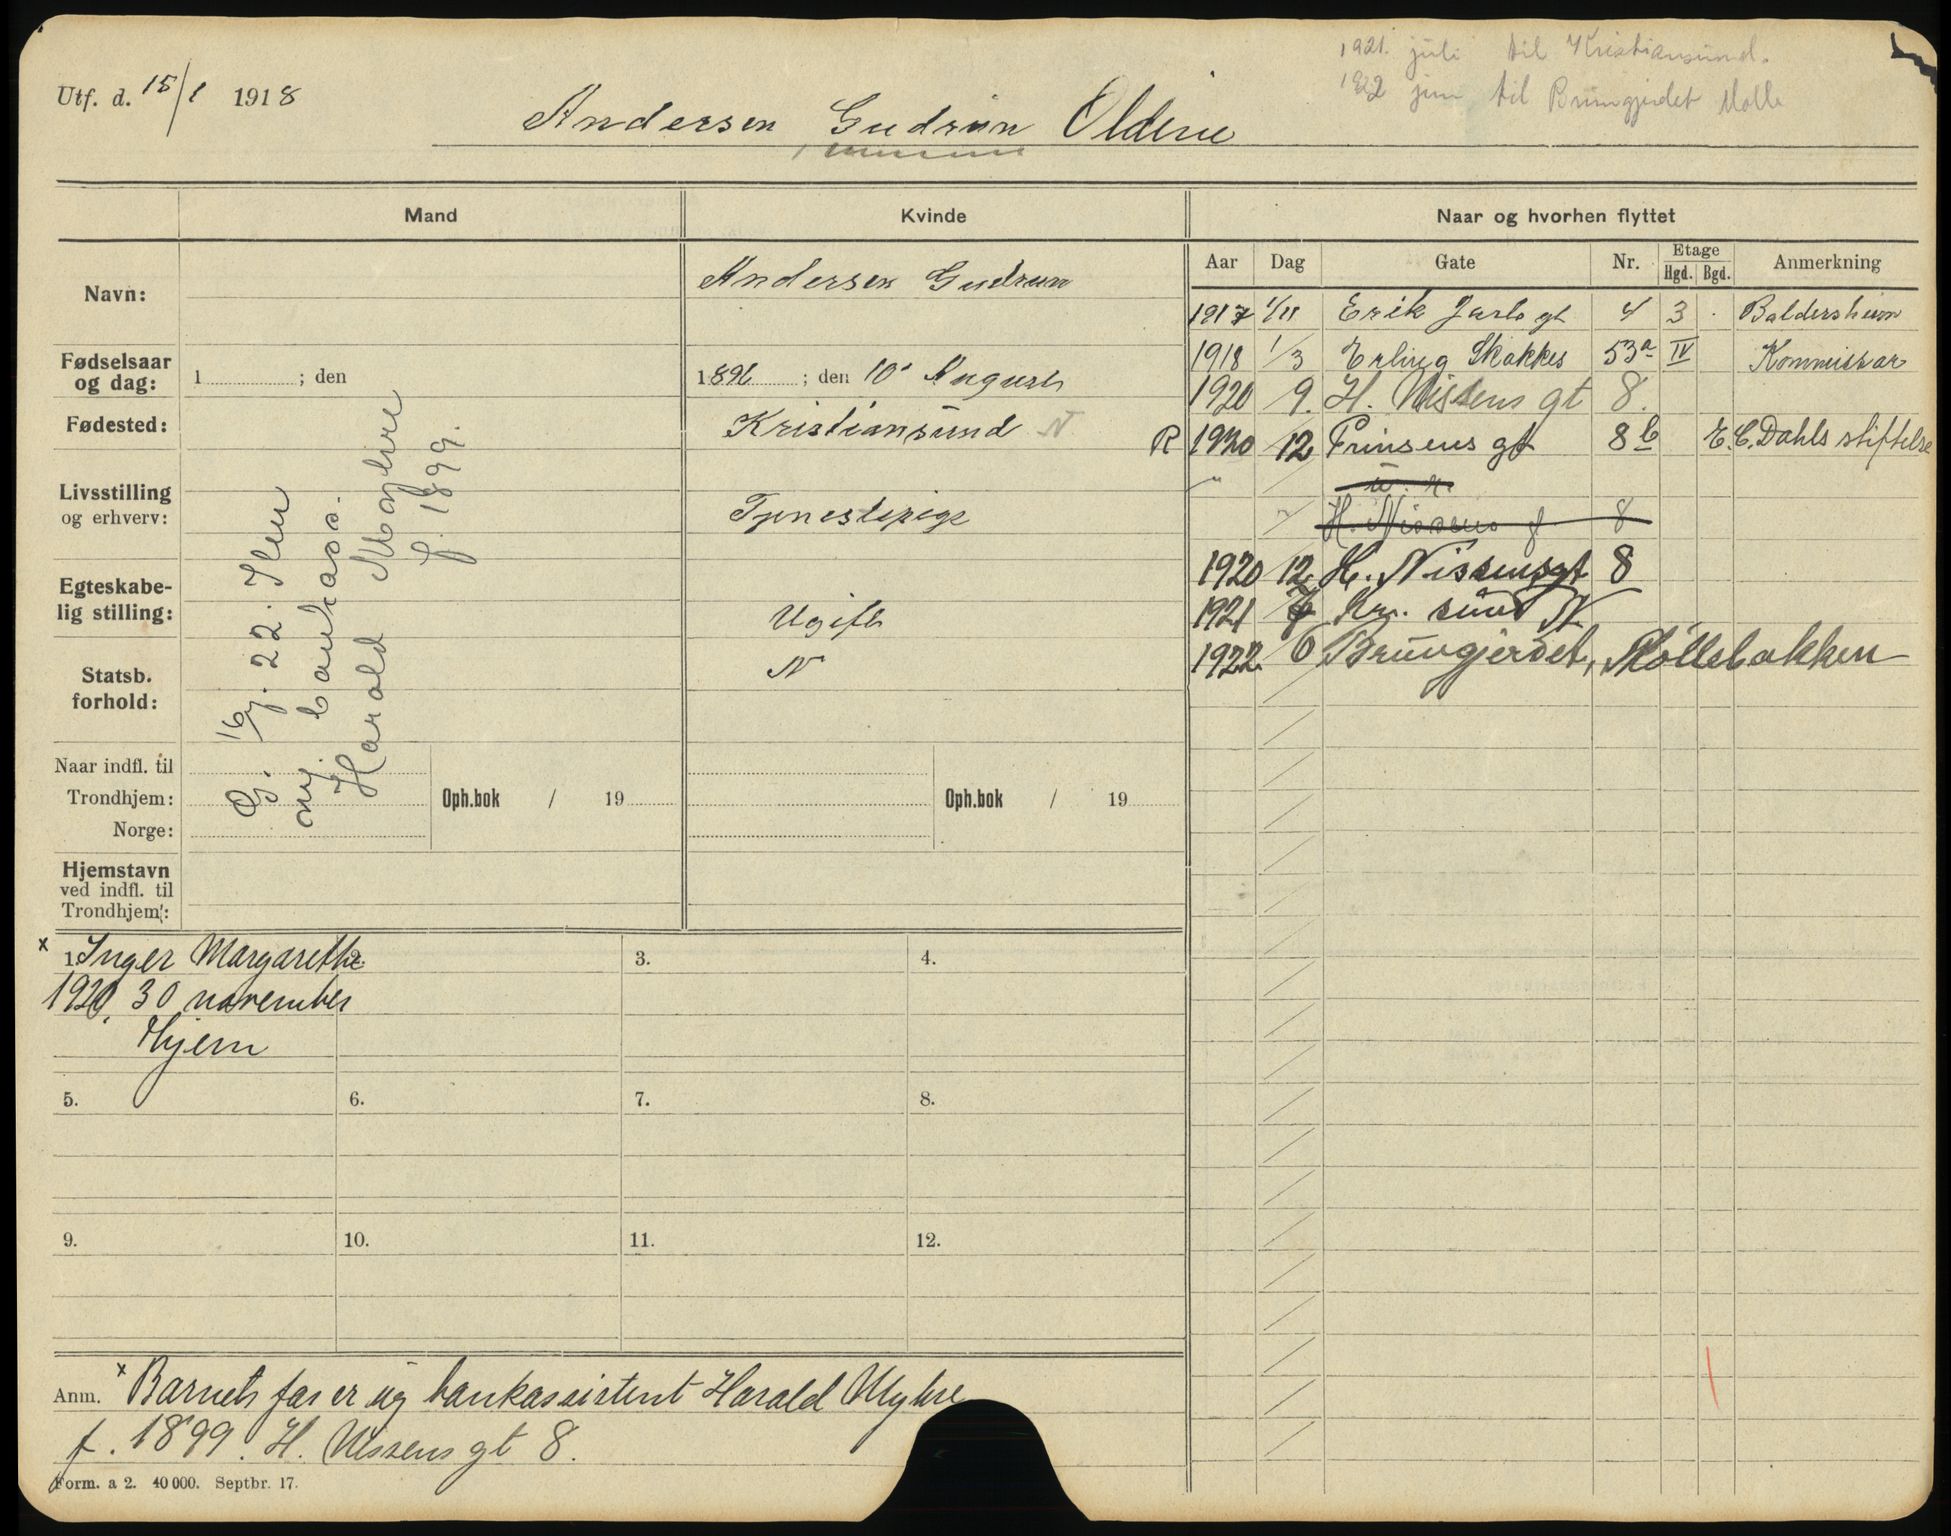 1921. juli til Kristiansund.
1922 juni til Brungjerdet Molle
Utf. d. 15/1 1918
Andersen Gudrun Oldine
Mand
Kvinde
Naar og hvorhen flyttet
Aar Dag Gate Nr. Etage Hgd. Bgd. Anmerkning
Navn: Andersen Gudrun
1917 1/11 Erik Jarls gt 4 3 Baldersheim
1918 1/3 Erling Skakkes 53a IV Kommissar
Fødselsaar og dag: 1 ; den
1896 ; den 10' August
1920 9. H. Nissens gt 8.
Fødested: Kristiansund N
R 1920 12 Prinsens gt 8b E. C. Dahls stiftelse
" u. r.
Livsstilling og erhverv: Tjenestepige
H. Nissens g. 8
1920 12 H. Nissensgt 8
Egteskabe-
lig stilling: Ugift
1921 7 Kr. sund N.
1922 6 Brungjerdet, Møllebakken
Statsb.
forhold: N
G. 16/7. 22. Ilen
m/. bankass.
Harald Myhre
f. 1899.
Naar indfl. til
Trondhjem: Oph.bok / 19
Oph.bok / 19
Norge:
Hjemstavn
ved indfl. til
Trondhjem:
x 1. Inger Margarethe 2. 3. 4.
1920, 30 november
Hjem
5. 6. 7. 8.
9. 10. 11. 12.
Anm. x Barnets far er ug bankassistent Harald Myhre
f. 1899. H. Nissens gt 8.
Form. a 2. 40 000. Septbr. 17.